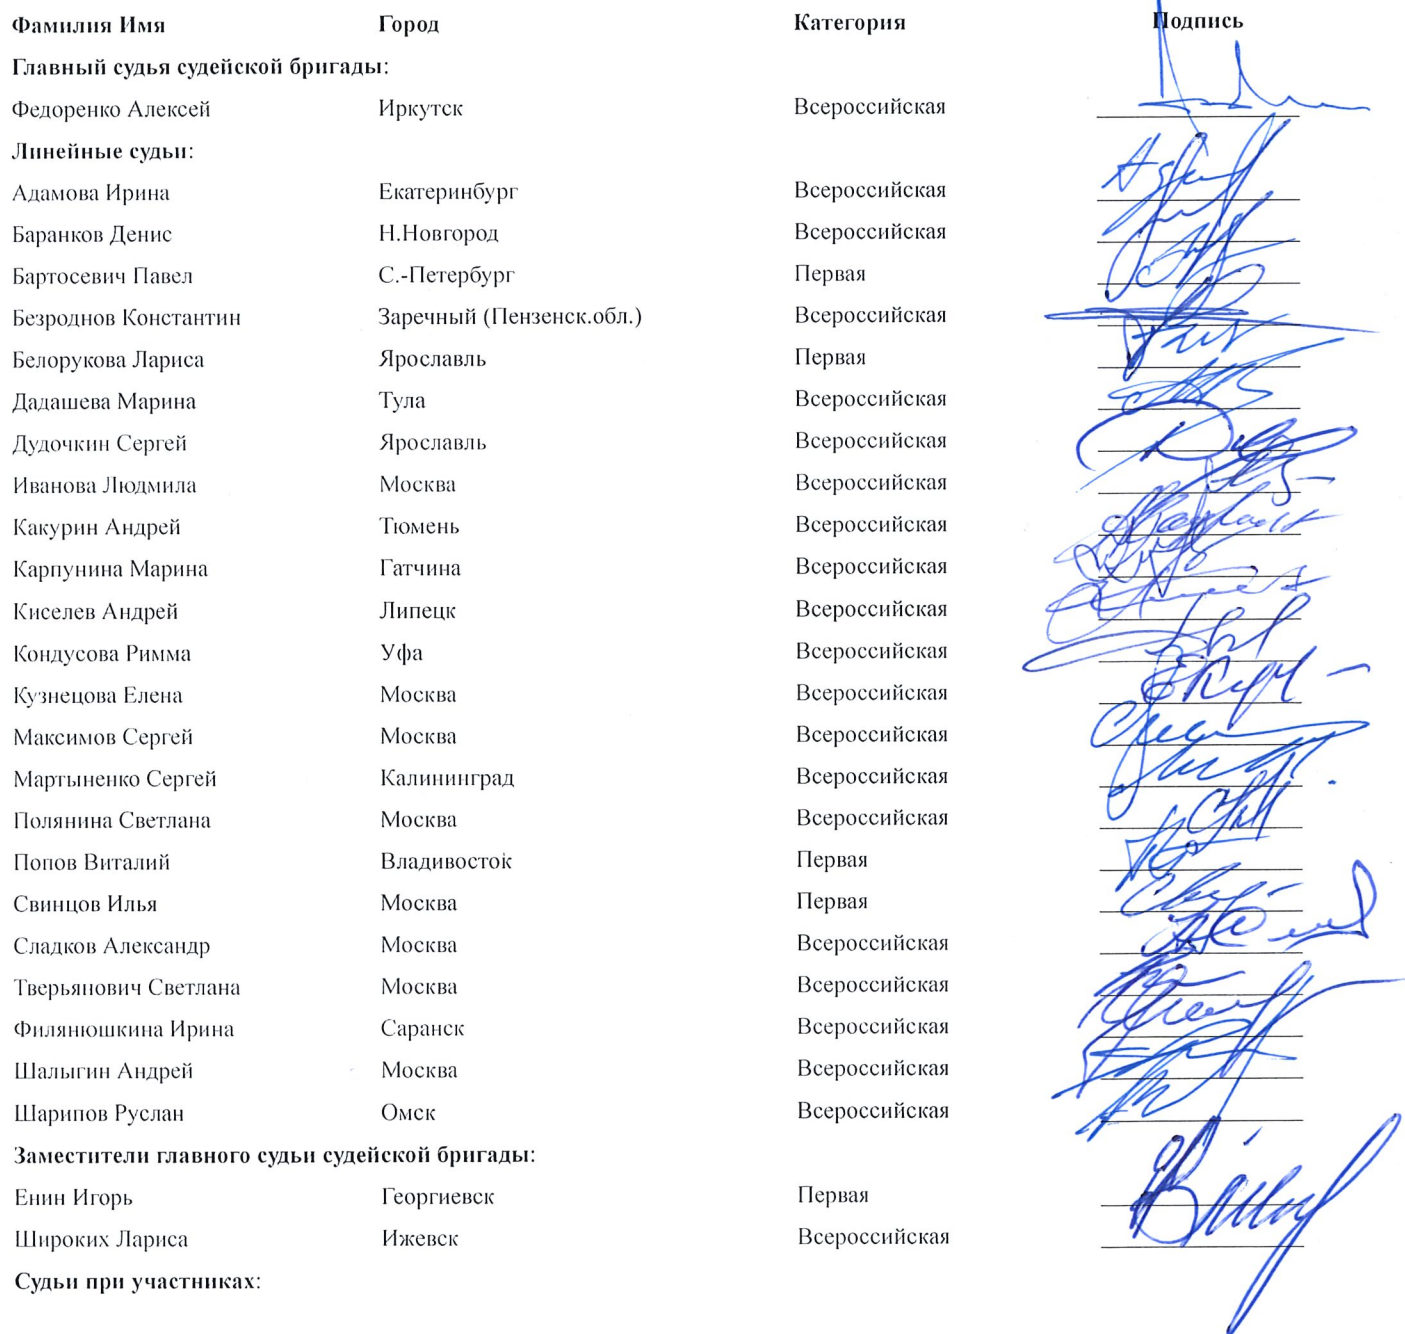 Фамилия Имя Город Категория Подпись
Главный судья судейской бригады:
Федоренко Алексей Иркутск Всероссийская
Линейные судьи:
Адамова Ирина Екатеринбург Всероссийская
Баранков Денис Н.Новгород Всероссийская
Бартосевич Павел С.-Петербург Первая
Безроднов Константин Заречный (Пензенск.обл.) Всероссийская
Белорукова Лариса Ярославль Первая
Дадашева Марина Тула Всероссийская
Дудочкин Сергей Ярославль Всероссийская
Иванова Людмила Москва Всероссийская
Какурин Андрей Тюмень Всероссийская
Карпунина Марина Гатчина Всероссийская
Киселев Андрей Липецк Всероссийская
Кондусова Римма Уфа Всероссийская
Кузнецова Елена Москва Всероссийская
Максимов Сергей Москва Всероссийская
Мартыненко Сергей Калининград Всероссийская
Полянина Светлана Москва Всероссийская
Попов Виталий Владивосток Первая
Свинцов Илья Москва Первая
Сладков Александр Москва Всероссийская
Тверьянович Светлана Москва Всероссийская
Филянюшкина Ирина Саранск Всероссийская
Шалыгин Андрей Москва Всероссийская
Шарипов Руслан Омск Всероссийская
Заместители главного судьи судейской бригады:
Енин Игорь Георгиевск Первая
Широких Лариса Ижевск Всероссийская
Судьи при участниках: